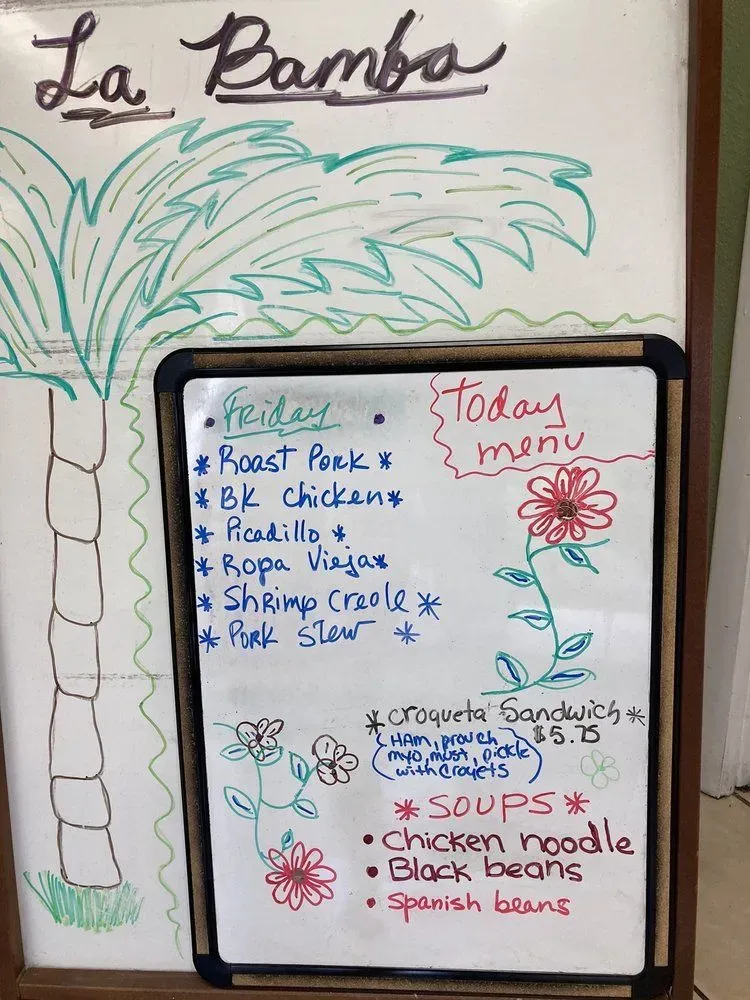 La Bamba
Friday
Today
menu
* Roast Pork *
* BK Chicken *
* Picadillo *
* Ropa Vieja *
* Shrimp Creole *
* Pork stew *
* Croqueta Sandwich *
$5.75
(HAM, prouch
myo, must, pickle
with Croqets)
* SOUPS *
• Chicken noodle
• Black beans
• Spanish beans